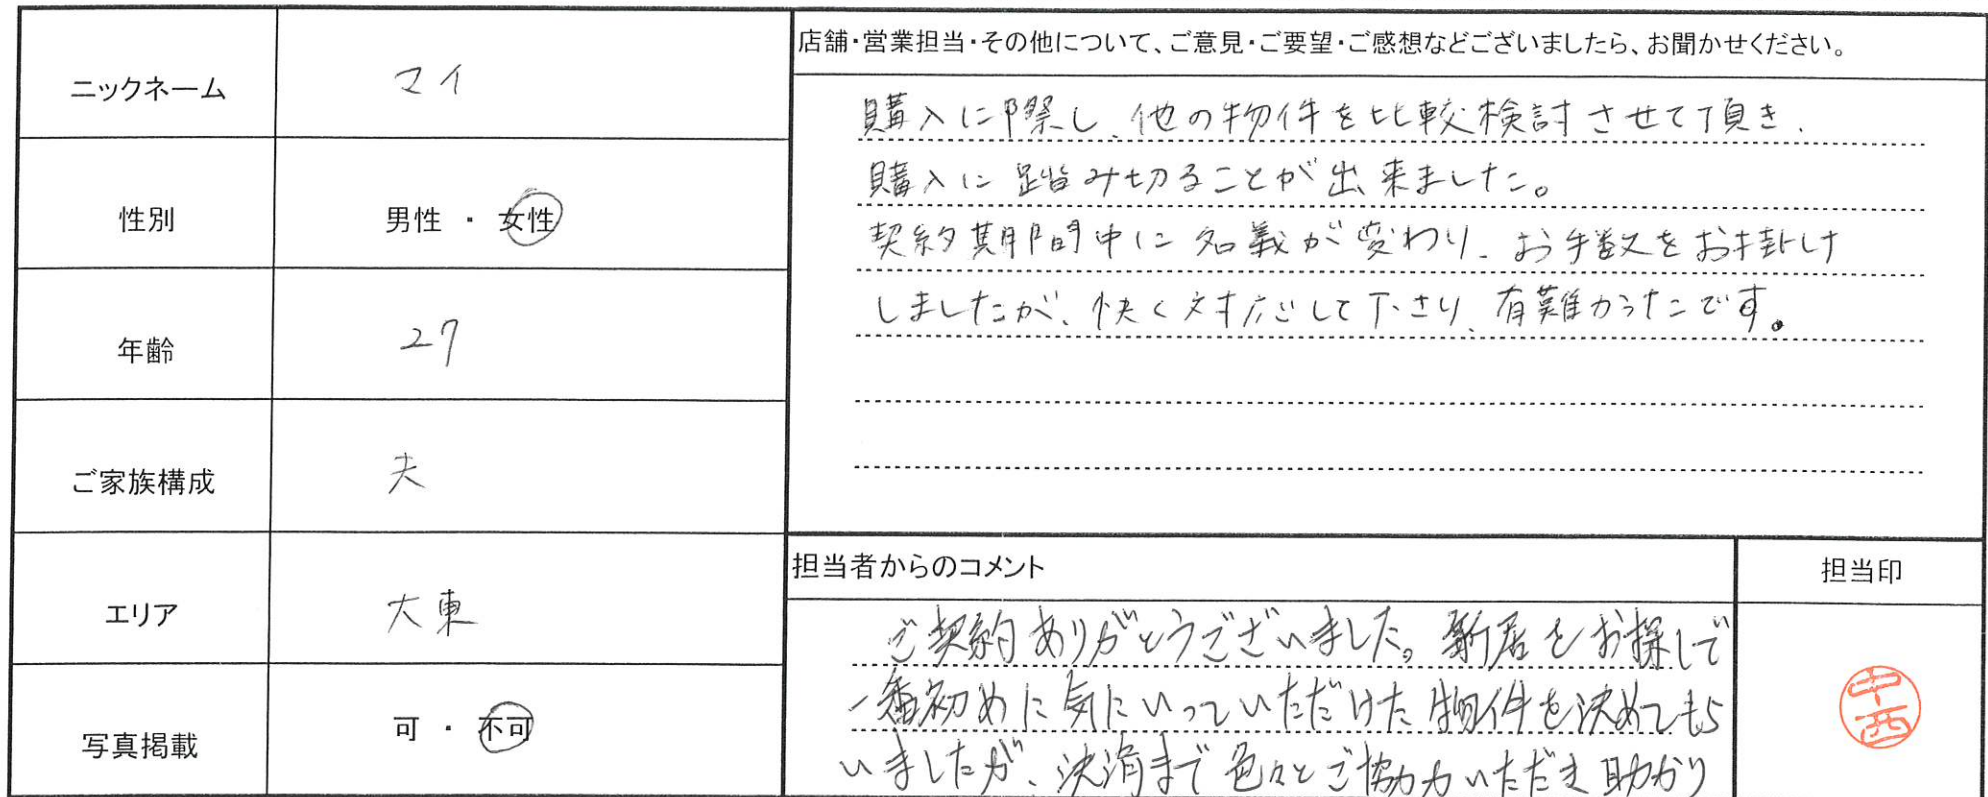 ニックネーム
マイ
性別
男性 ・ 女性
年齢
27
ご家族構成
夫
エリア
大東
写真掲載
可 ・ 不可
店舗・営業担当・その他について、ご意見・ご要望・ご感想などございましたら、お聞かせください。
購入に際し、他の物件を比較検討させて頂き、
購入に踏み切ることが出来ました。
契約期間中に名義が変わり、お手数をお掛け
しましたが、快く対応して下さり、有難かったです。
担当者からのコメント
ご契約ありがとうございました。新居をお探しで
一番初めに気にいっていただけた物件を決めてもら
いましたが、決済まで色々とご協力いただき助かり
担当印
中西